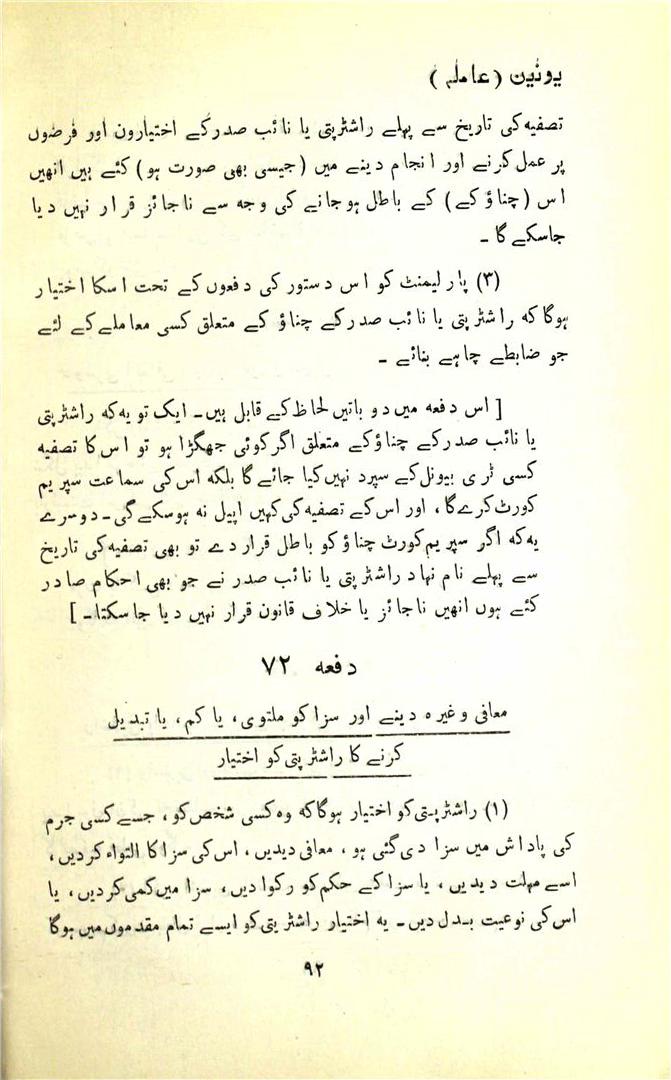 یونین (عاملہ)
تصفیہ کی تاریخ سے پہلے راشٹرپتی یا نائب صدر کے اختیارون اور فرضوں
پر عمل کرنے اور انجام دینے میں (جیسی بھی صورت ہو) کئے ہیں انھیں
اس (چناؤ کے) کے باطل ہوجانے کی وجہ سے ناجائز قرار نہیں دیا
جاسکے گا ۔
(۳) پارلیمنٹ کو اس دستور کی دفعوں کے تحت اسکا اختیار
ہوگا کہ راشٹرپتی یا نائب صدر کے چناؤ کے متعلق کسی معاملے کے لئے
جو ضابطے چاہے بنائے ۔
[ اس دفعہ میں دو باتیں لحاظ کے قابل ہیں۔ ایک تو یہ کہ راشٹرپتی
یا نائب صدر کے چناؤ کے متعلق اگر کوئی جھگڑا ہو تو اس کا تصفیہ
کسی ٹری بیونل کے سپرد نہیں کیا جائے گا بلکہ اس کی سماعت سپریم
کورٹ کرے گا ، اور اس کے تصفیہ کی کہیں اپیل نہ ہوسکے گی۔ دوسرے
یہ کہ اگر سپریم کورٹ چناؤ کو باطل قرار دے تو بھی تصفیہ کی تاریخ
سے پہلے نام نہاد راشٹرپتی یا نائب صدر نے جو بھی احکام صادر
کئے ہوں انھیں ناجائز یا خلاف قانون قرار نہیں دیا جاسکتا۔ ]
دفعہ ۷۲
معافی وغیرہ دینے اور سزا کو ملتوی، یا کم، یا تبدیل
کرنے کا راشٹرپتی کو اختیار
(۱) راشٹرپتی کو اختیار ہوگا کہ وہ کسی شخص کو ، جسے کسی جرم
کی پاداش میں سزا دی گئی ہو ، معافی دیدیں، اس کی سزا کا التواء کردیں ،
اسے مہلت دیدیں ، یا سزا کے حکم کو رکوا دیں ، سزا میں کمی کردیں ، یا
اس کی نوعیت بدل دیں۔ یہ اختیار راشٹرپتی کو ایسے تمام مقدموں میں ہوگا
۹۲